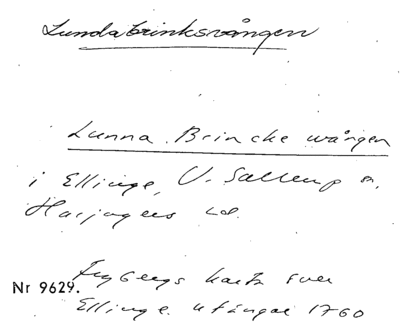 Lundabrinksvången
Lunna Brincke wången
i Ellinge, V. Sallerup sn,
Harjagers hd.
Frybergs karta över
Nr 9629.
Ellinge utängar 1760